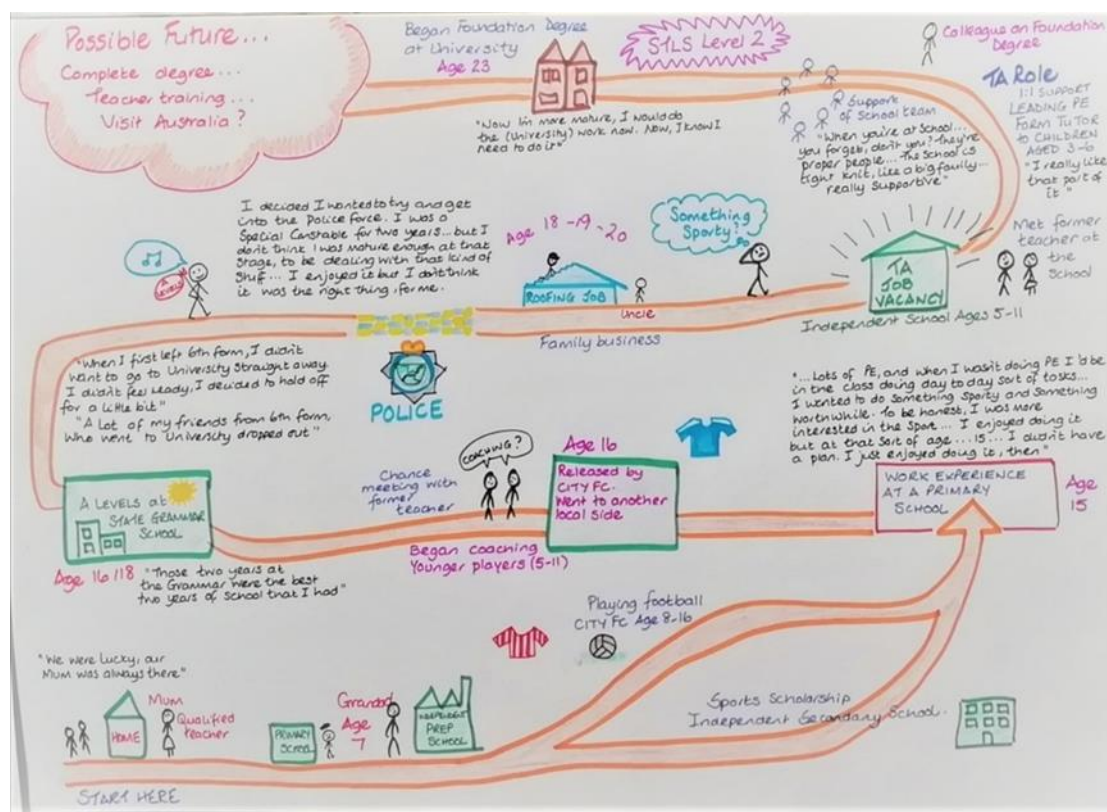 Possible Future...
Complete degree...
Teacher training...
Visit Australia?
Began Foundation Degree
at University
Age 23
STLS Level 2
Colleague on Foundation
Degree
TA Role
1:1 SUPPORT
LEADING PE
FORM TUTOR
TO CHILDREN
AGED 3-6
"I really like
that part of
it"
Support
of School team
"When you're at School...
you forget, don't you? They're
proper people... The School is
tight knit, like a big family...
really supportive"
"Now I'm more mature, I would do
the (University) work now. Now, I know I
need to do it"
I decided I wanted to try and get
into the Police Force. I was a
Special Constable for two years... but I
don't think I was mature enough at that
stage, to be dealing with that kind of
stuff... I enjoyed it but I don't think
it was the right thing, for me.
Age 18-19-20
Something
Sporty?
ROOFING JOB
uncle
Family business
TA
JOB
VACANCY
Met former
teacher at
the
School
Independent School Ages 5-11
A LEVELS
"When I first left 6th form, I didn't
want to go to University Straught away.
I didn't feel ready, I decided to hold off
for a little bit"
"A lot of my friends from 6th form,
who went to University dropped out"
POLICE
"...Lots of PE, and when I wasn't doing PE I'd be
in the class doing day to day sort of tasks...
I wanted to do something sporty and something
worthwhile. To be honest, I was more
interested in the Sport... I enjoyed doing it
but at that sort of age...15... I didn't have
a plan. I just enjoyed doing it, then"
A LEVELS at
STATE GRAMMAR
SCHOOL
Age 16/18
"Those two years at
the Grammar were the best
two years of School that I had"
Chance
meeting with
former
teacher
COACHING?
Began coaching
Younger players (5-11)
Age 16
Released by
CITY FC.
Went to another
local side
WORK EXPERIENCE
AT A PRIMARY
SCHOOL
Age
15
Playing football
CITY FC Age 8-16
"We were lucky, our
Mum was always there"
HOME
Mum
Qualified
teacher
PRIMARY
SCHOOL
Grandad
Age
7
INDEPENDENT
PREP
SCHOOL
Sports Scholarship
Independent Secondary School.
START HERE